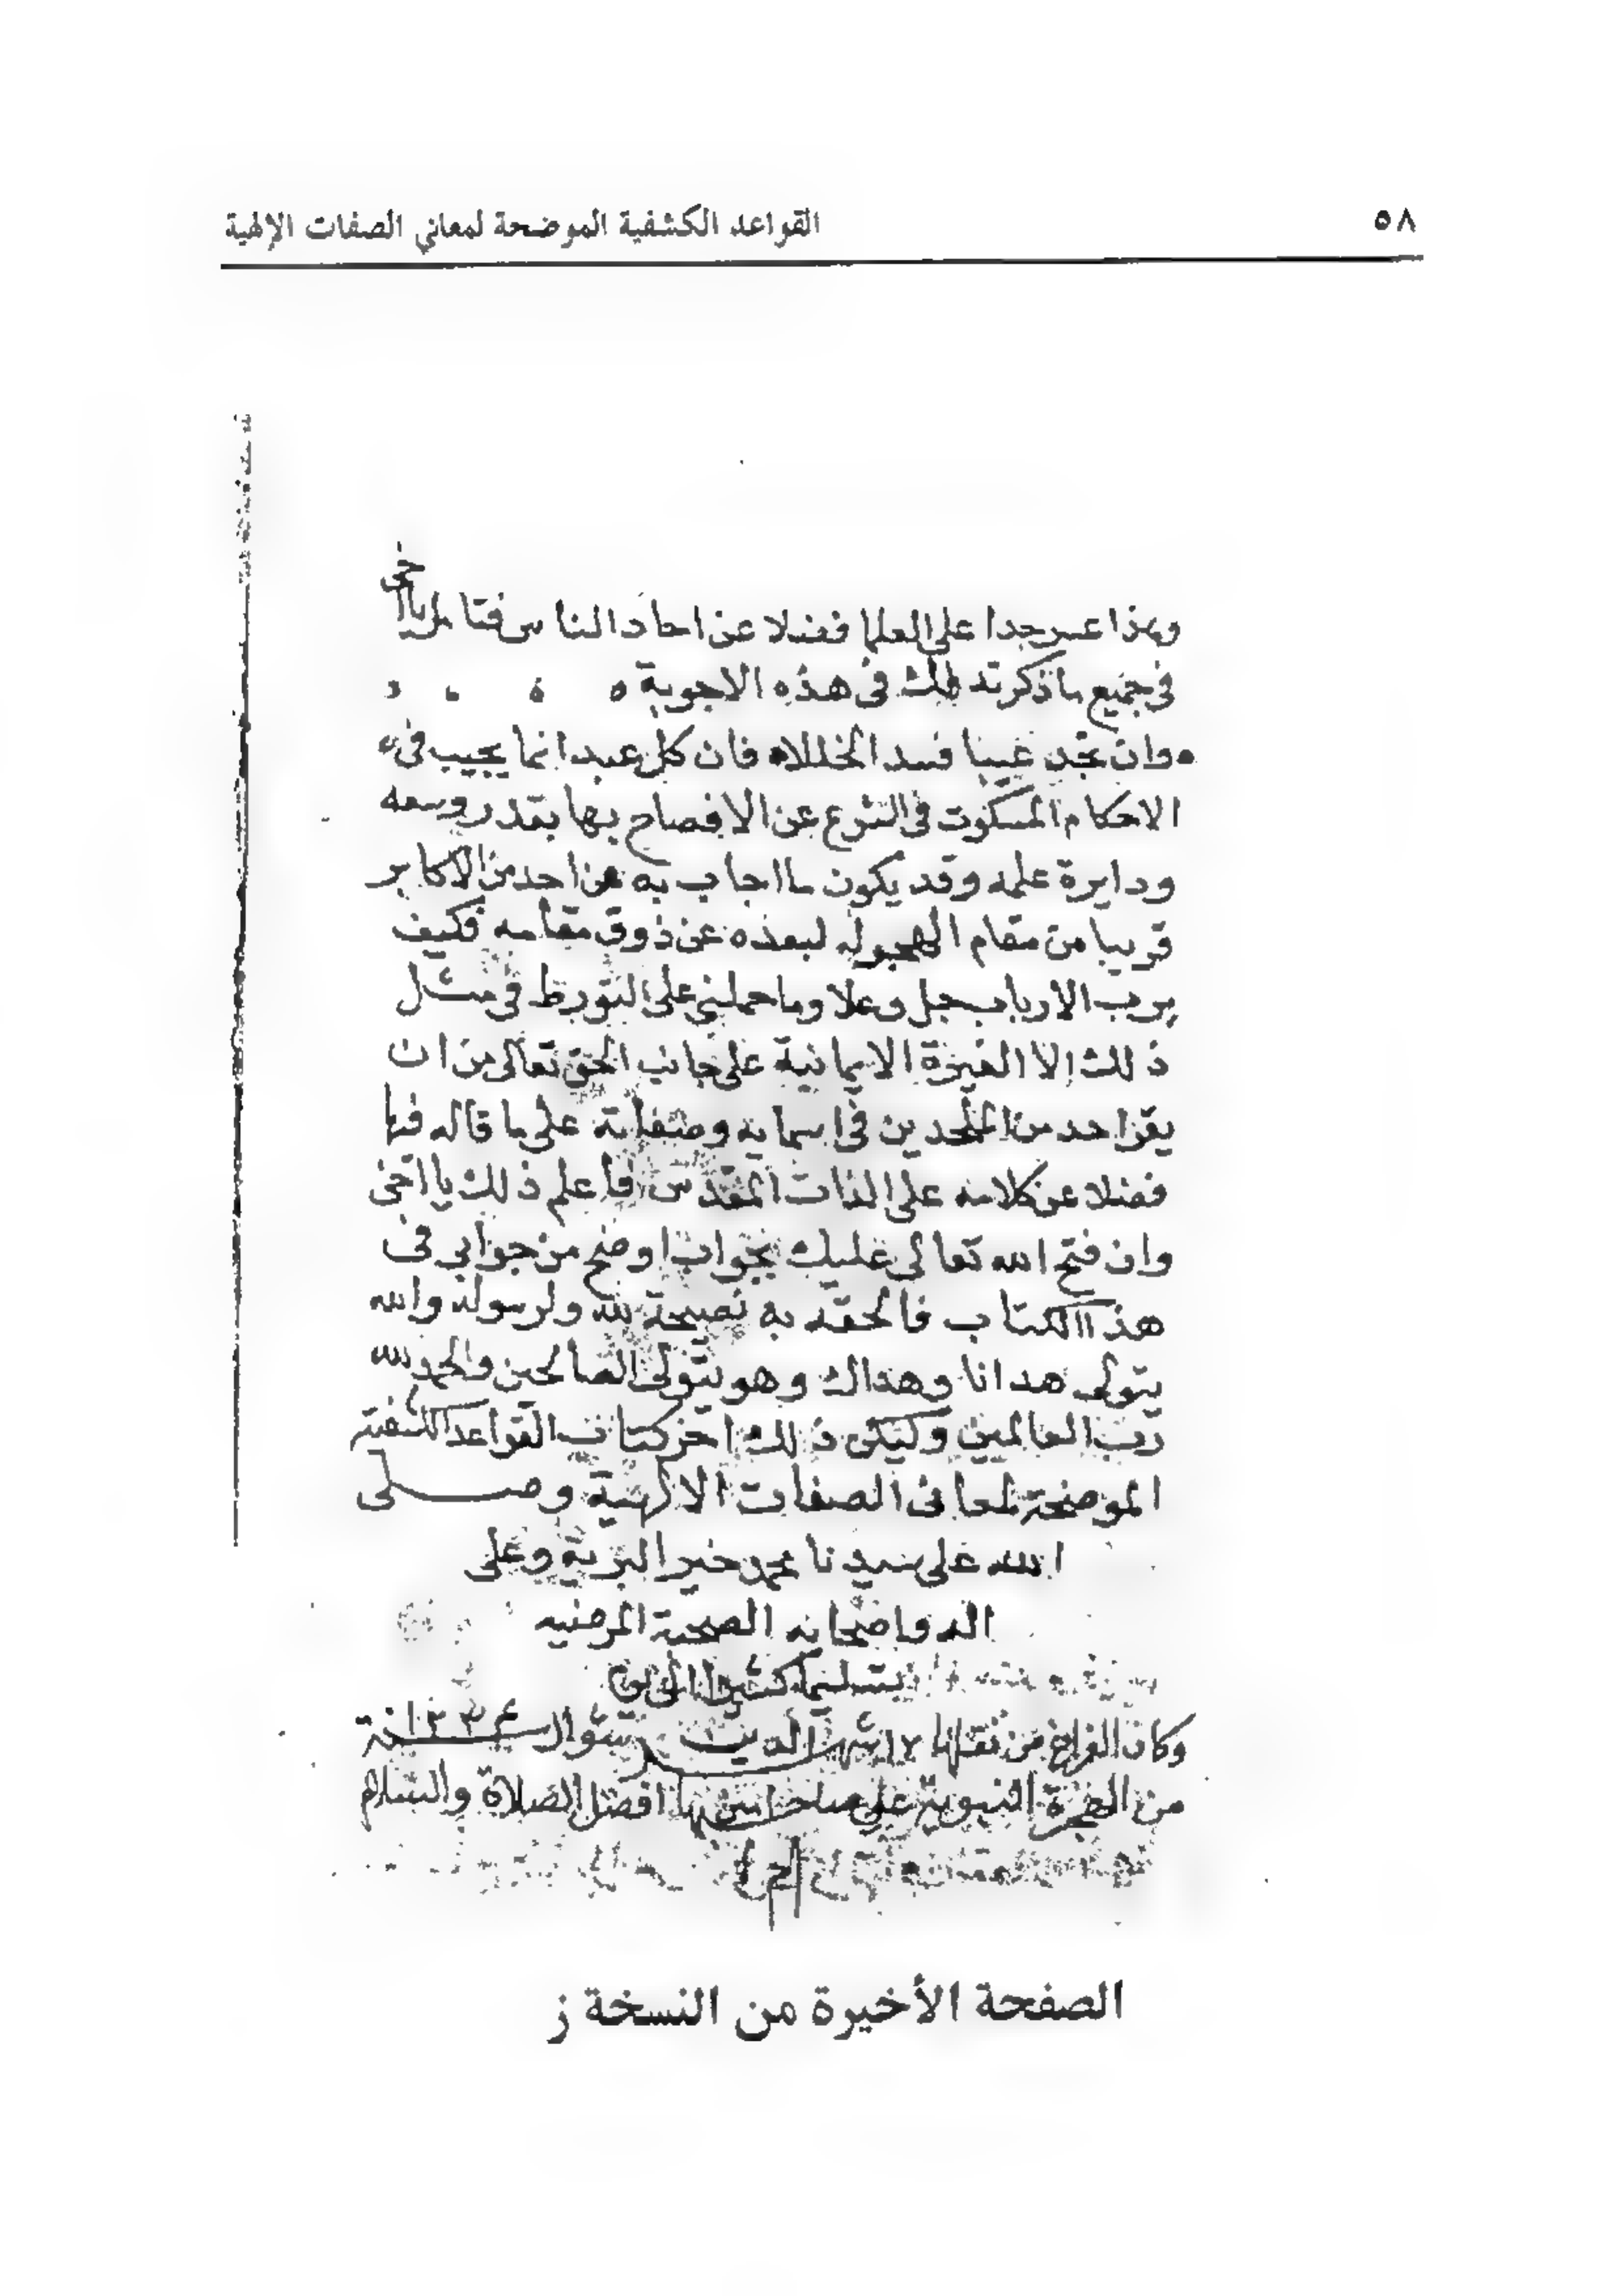 ٥٨
القواعد الكشفية الموضحة لمعاني الصفات الإلهية
وهذا عسر جدا على العلما فضلا عن احاد الناس فتامل يا اخى
فى جميع ما ذكرته لك فى هذه الاجوبة
وان تجد عيبا فسد الخللا فان كل عبد انما يجيب فى
الاحكام المسكوت فى الشرع عن الافصاح بها بقدر وسعه
ودايرة علمه وقد يكون ما اجاب به عن احد من الاكابر
قريبا من مقام الهجو له لبعده عن ذوق مقامه فكيف
برب الارباب جل وعلا وما حملنى على التورط فى مثل
ذلك الا الغيرة الايمانية على جانب الحق تعالى من ان
يقر احد من الملحدين فى اسمايه وصفاته على ما قاله فيها
فضلا عن كلامه على الذات المقدس فاعلم ذلك يا اخى
وان فتح الله تعالى عليك بجواب اوضح من جوابى فى
هذا الكتاب فالحقه به نصيحة لله ولرسوله والله
يتولى هدانا وهداك وهو يتولى الصالحين والحمد لله
رب العالمين وليكن ذلك اخر كتاب القواعد الكشفية
الموضحة لمعانى الصفات الالهية وصلى
الله على سيدنا محمد خير البرية وعلى
اله واصحابه الصحبة المرضيه
تسليما كثيرا
وكان الفراغ من نقلها شوال سنة
من الهجرة النبوية على صاحبها افضل الصلاة والسلام
الصفحة الأخيرة من النسخة ز